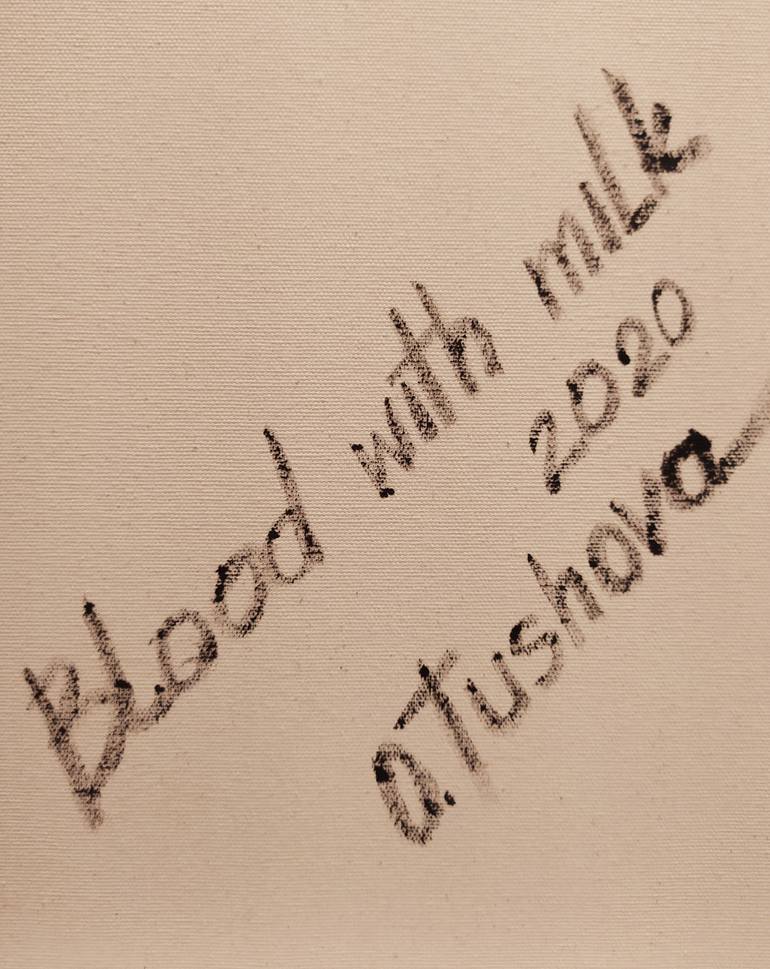 Blood with milk
2020
O.Tushova